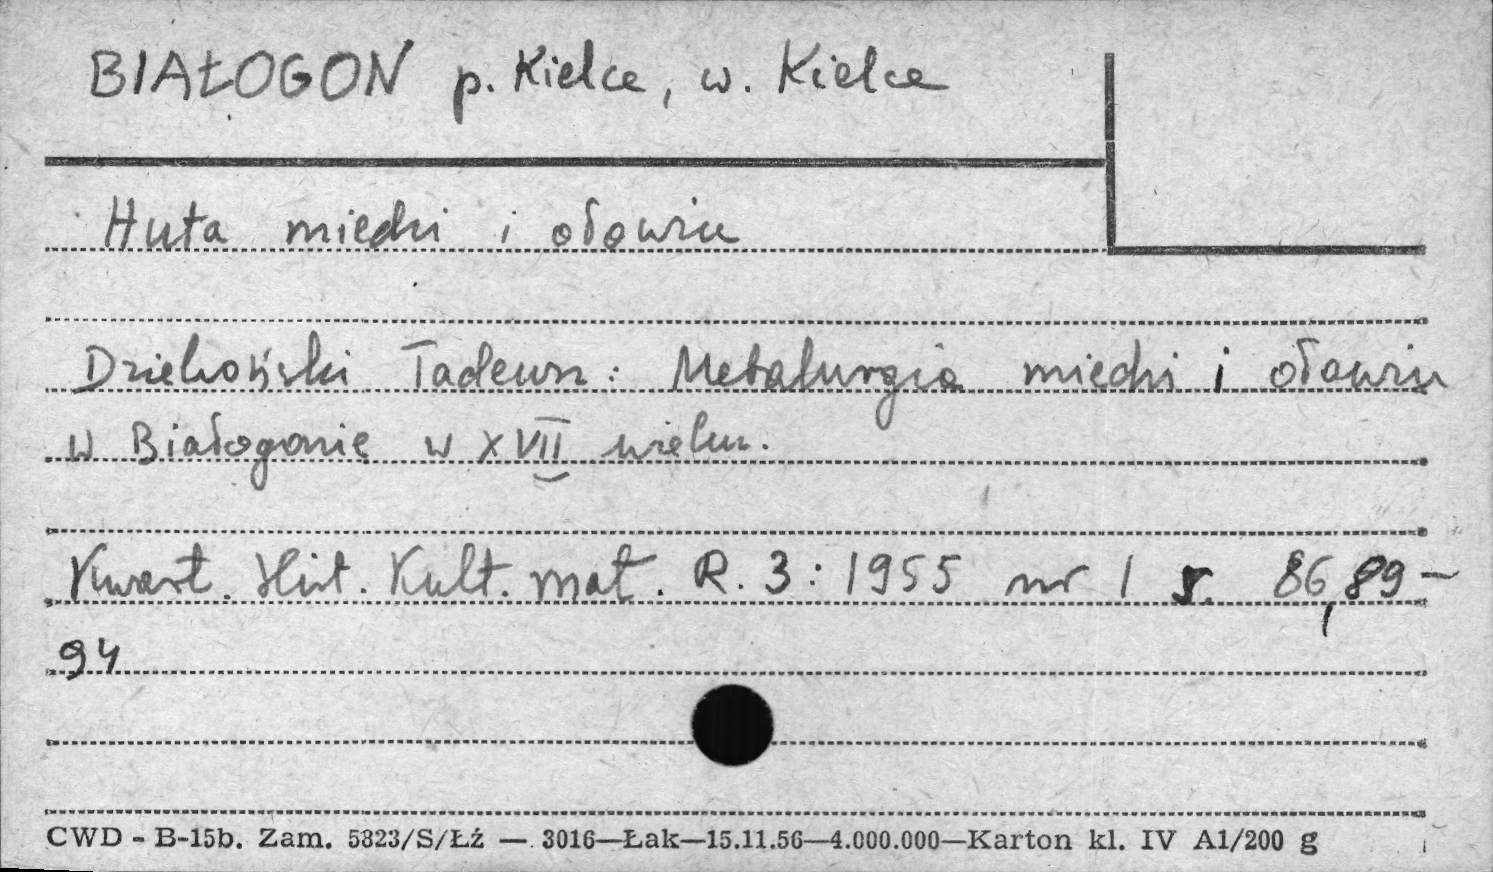 BIAŁOGON p. Kielce, w. Kielce
Huta miedzi i ołowiu
Dziekoński Tadeusz: Metalurgia miedzi i ołowiu
w Białogonie w XVII wieku.
Kwart. Hist. Kult. mat. R. 3: 1955 nr 1 s. 86, 89-
94
CWD - B-15b. Zam. 5823/S/Łż — 3016—Łak—15.11.56—4.000.000—Karton kl. IV A1/200 g